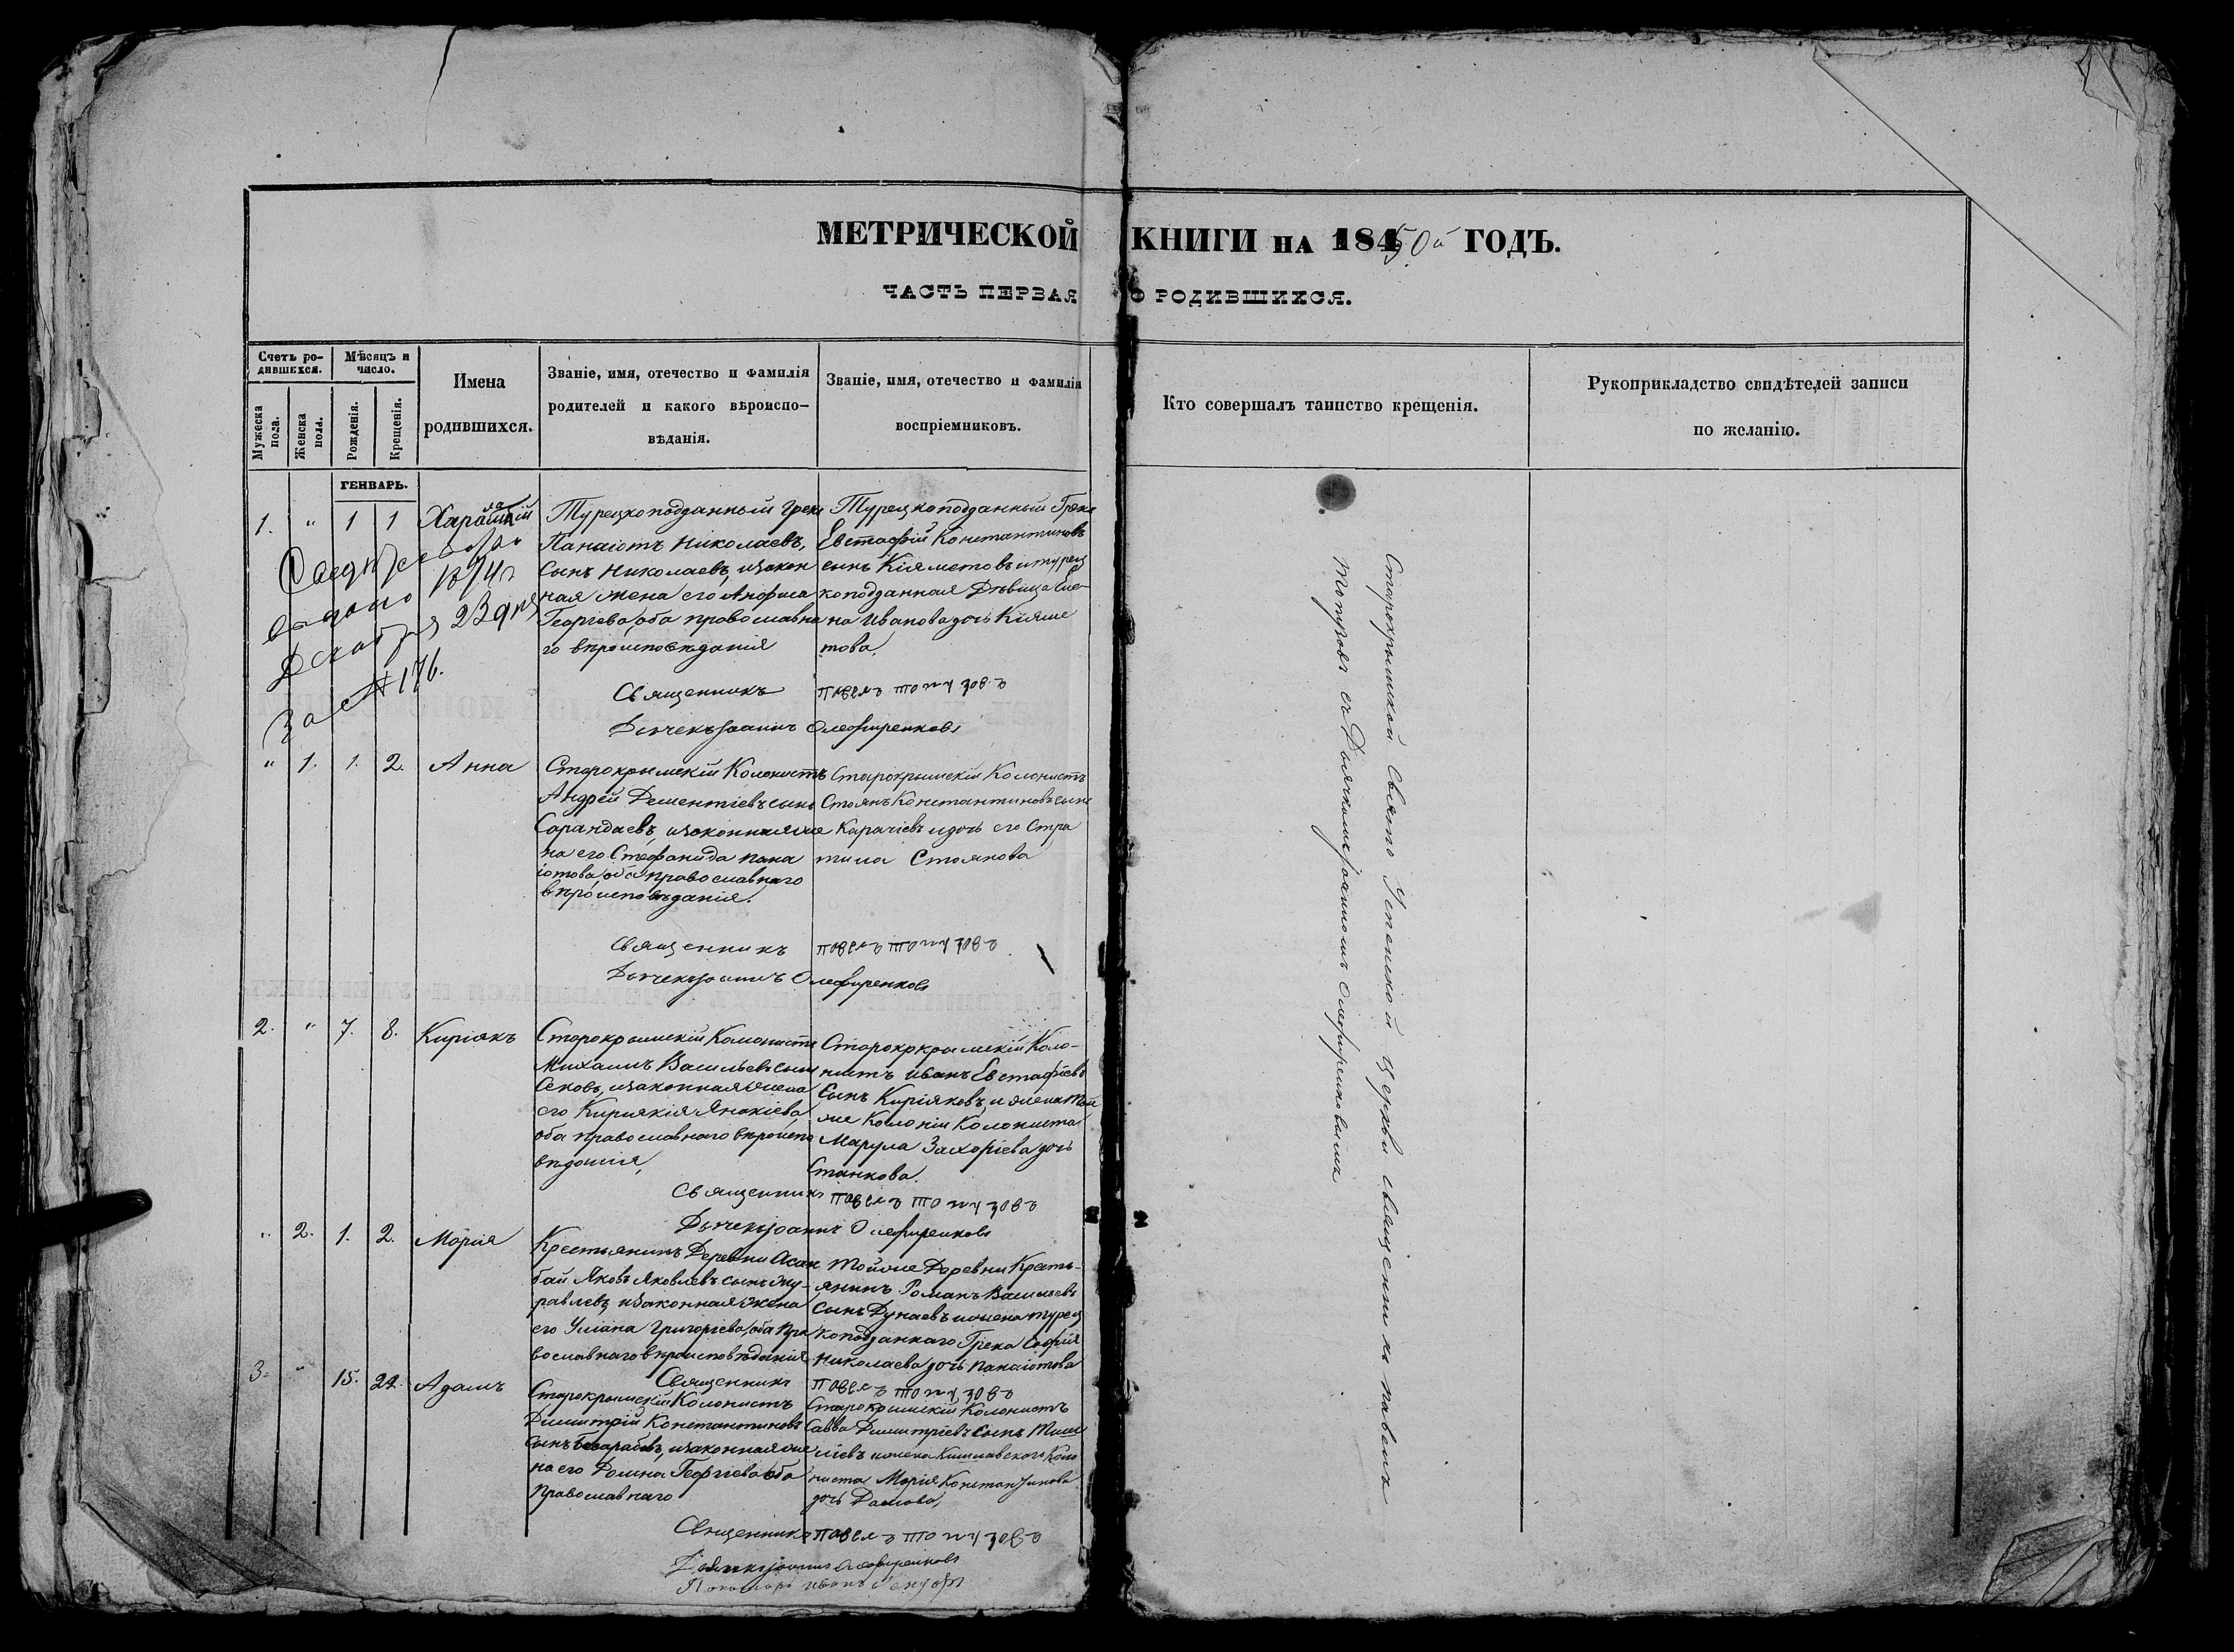 МЕТРИЧЕСКОЙ КНИГИ НА 1850й ГОДЪ.
ЧАСТЬ ПЕРВАЯ О РОДИВШИХСЯ.
Счетъ ро-
дившихся.
Мѣсяцъ и
число.
Мужеска
пола.
Женска
пола.
Рожденія.
Крещенія.
Имена
родившихся.
Званіе, имя, отечество и фамилія
родителей и какого вѣроиспо-
вѣданія.
Званіе, имя, отечество и фамилія
воспріемниковъ.
Кто совершалъ таинство крещенія.
Рукоприкладство свидѣтелей записи
по желанію.
ГЕНВАРЬ.
1. " 1 1
Турецкоподданный Грекъ
Панаіотъ Николаевъ,
сынъ Николаевъ, изакон
ная жена его Анфиса
Георгіева, оба православна
го вѣроисповѣданія
Турецкоподданный Грекъ
Евстафій Константиновъ
сынъ Кіяметовъ и турец
коподданная Дѣвица Еле-
на Иванова дочь Кіяме
това.
выдано 1874г
Декабря 23 дня
За № 176.
Священникъ Павелъ Топузовъ
Дьячекъ Іоаннъ Олефиренковъ
" 1. 1. 2. Анна
Старокрымскій Колонистъ
Андрей Дементіевъ сынъ
Сарандаевъ, изаконная же
на его Стефанида Пана
іотова оба православнаго
вѣроисповѣданія.
Старокрымскій Колонистъ
Стоянъ Константиновъ сынъ
Карачіевъ и дочь его Стра
тила Стоянова
Священникъ Павелъ Топузовъ
Дьячекъ Іоаннъ Олефиренковъ
2. " 7. 8. Киріякъ
Старокрымскій Колонистъ
Михаилъ Васильевъ сынъ
изаконная жена
его Кириякія Янакіева,
оба православнаго вѣроиспо
вѣданія,
Старокркрымскій Коло-
нистъ Иванъ Евстафіевъ
Сынъ Киріяковъ, и жена той
же Колоніи Колониста
Марула Захоріева дочь
Станкова.
Священникъ Павелъ Топузовъ
Дьячекъ Іоаннъ Олефиренковъ
" 2. 1. 2. Марія
Крестьянинъ Деревни Асан
бай Яковъ Яковлевъ сынъ Жу-
равлевъ, изаконная жена
его Уліана Григоріева, оба пра
вославнаго вѣроисповѣданія
Тойже Деревни Кресть-
янинъ Романъ Васильевъ
сынъ Дунаевъ и жена турец
коподданнаго Грека Софія
Николаева дочь Панаіотова
Священникъ Павелъ Топузовъ
3. " 15. 22. Адамъ
Старокрымскій Колонистъ
Димитрій Константиновъ
сынъ Бесарабовъ, изаконная же
на его Домна Георгіева оба
Православнаго
Старокрымскій Колонистъ
Савва Димитріевъ сынъ
и жена Кишлавскаго Коло
ниста Марія Константинова
дочь
Священникъ Павелъ Топузовъ
Дьячекъ Іоаннъ Олефиренковъ
Пономарь Иванъ
Старокрымской Свято Успенской церкви священникъ Павелъ
Топузовъ съ Дьячкомъ Іоанномъ Олефиренковымъ